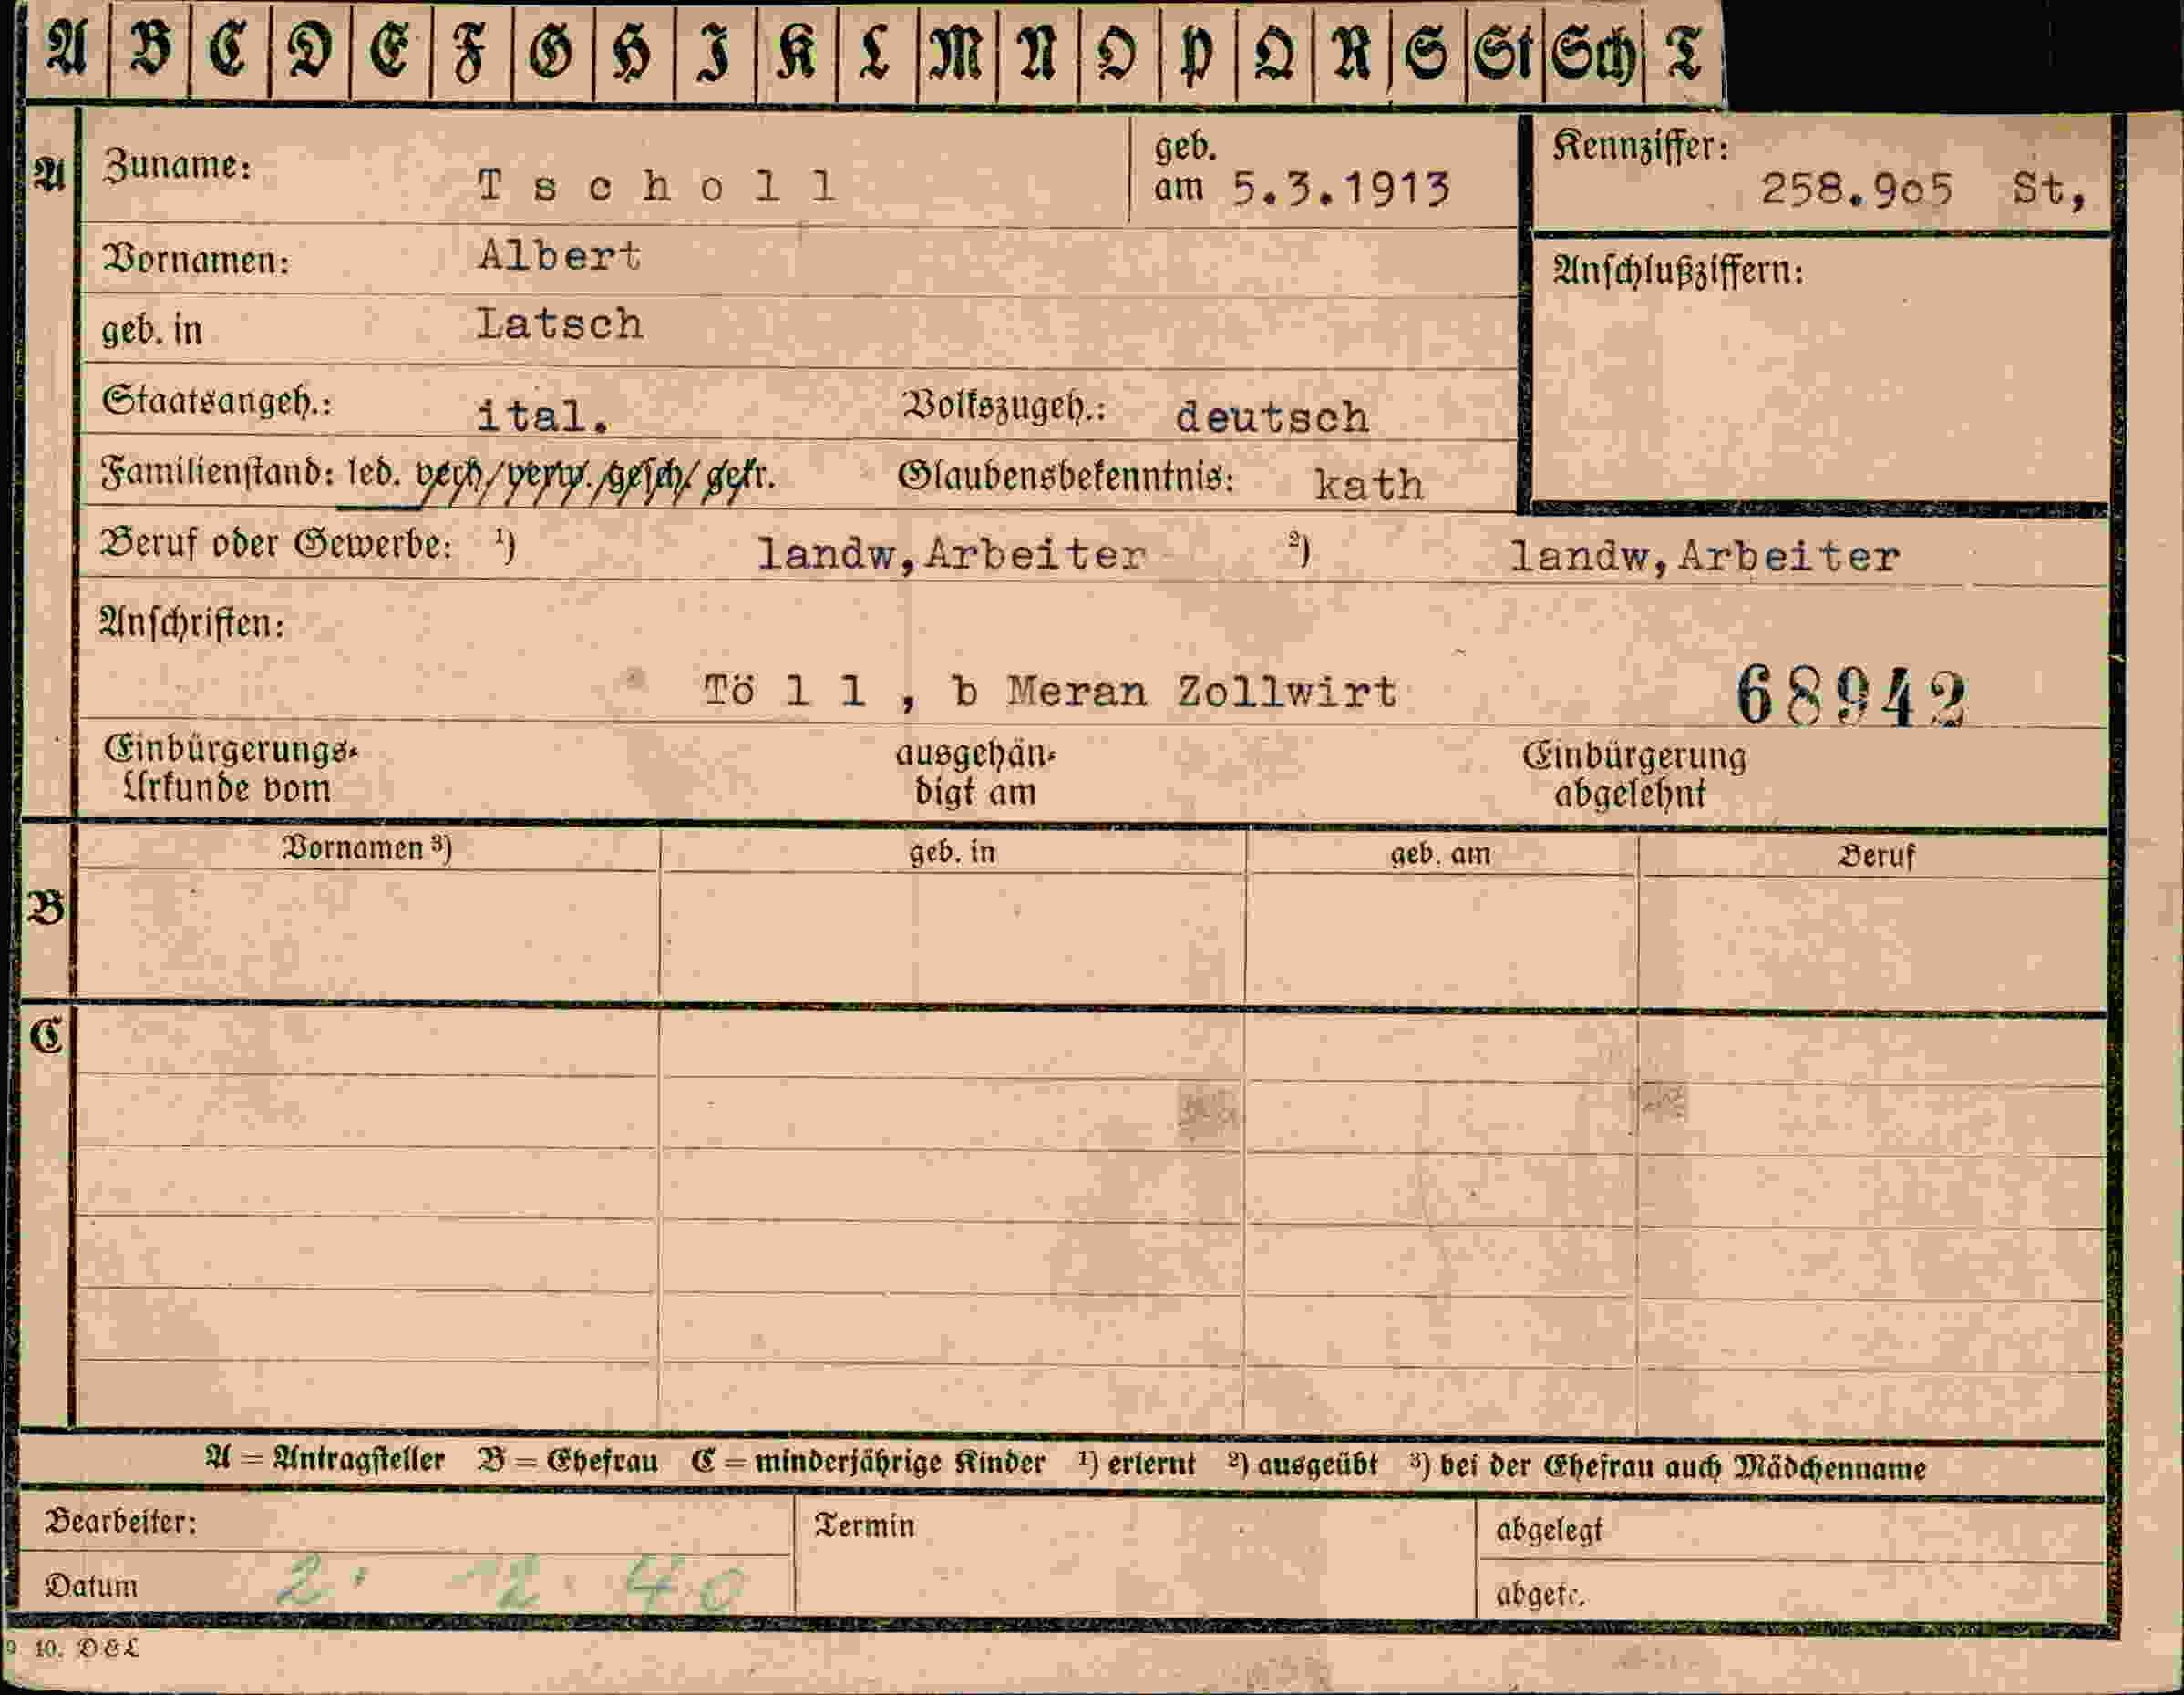 A B C D E F G H I K L M N O P Q R S St Sch T
A Zuname: Tscholl geb. am 5.3.1913 Kennziffer: 258.905 St,
Vornamen: Albert Anschlußziffern:
geb. in Latsch
Staatsangeh.: ital. Volkszugeh.: deutsch
Familienstand: led. verh/verw./gesch/getr. Glaubensbekenntnis: kath
Beruf oder Gewerbe: ¹) landw,Arbeiter ²) landw,Arbeiter
Anschriften:
Tö l l , b Meran Zollwirt 68942
Einbürgerungs-
Urkunde vom
ausgehän-
digt am
Einbürgerung
abgelehnt
B Vornamen ³) geb. in geb. am Beruf
C
A = Antragsteller B = Ehefrau C = minderjährige Kinder ¹) erlernt ²) ausgeübt ³) bei der Ehefrau auch Mädchenname
Bearbeiter: Termin abgelegt
Datum 2. 12. 40 abgetr.
10. D&L